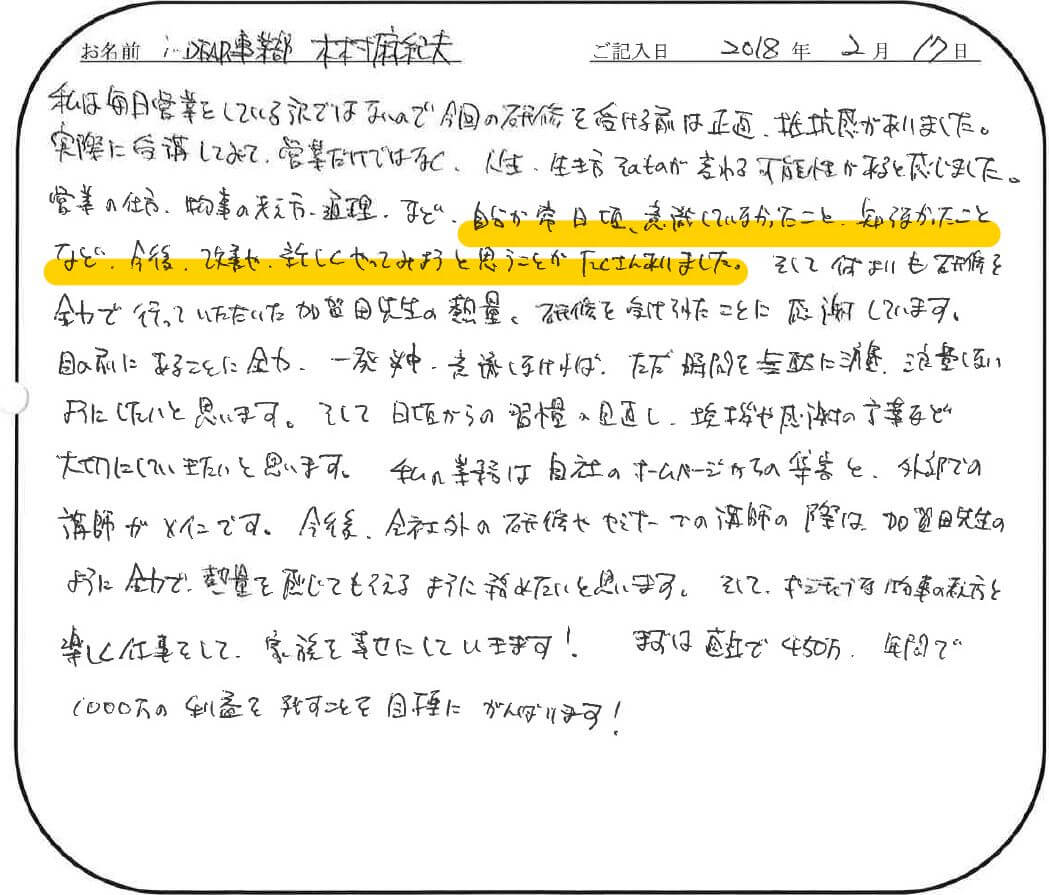 お名前 i-DEAR事業部 木村麻紀夫 ご記入日 2018年2月17日
私は毎日営業をしている訳ではないので今回の研修を受ける前は正直、抵抗感がありました。
実際に受講してみて、営業だけではなく、人生、生き方そのものが変わる可能性があると感じました。
営業の仕方、物事の考え方、道理、など、自分が常日頃、意識していなかったこと、知らなかったこと
など、今後、改善や、新しくやってみようと思うことがたくさんありました。そして何よりも研修を
全力で行っていただいた加賀田先生の熱量、研修を受けれたことに感謝しています。
目の前にあることに全力、一発必中、意識しなければ、ただ時間を無駄に消費、しない
ようにしたいと思います。そして日頃からの習慣の見直し、挨拶や感謝の言葉など
大切にしていきたいと思います。私の業務は自社のホームページからの集客と、外部での
講師がメインです。今後、会社外の研修やセミナーでの講師の際は、加賀田先生の
ように全力で、熱量を感じてもらえるように務めたいと思います。そして、ポジティブな物事の考え方と
楽しく仕事をして、家族を幸せにしていきます！まずは直近で450万、年間で
1000万の利益を残すことを目標にがんばります！